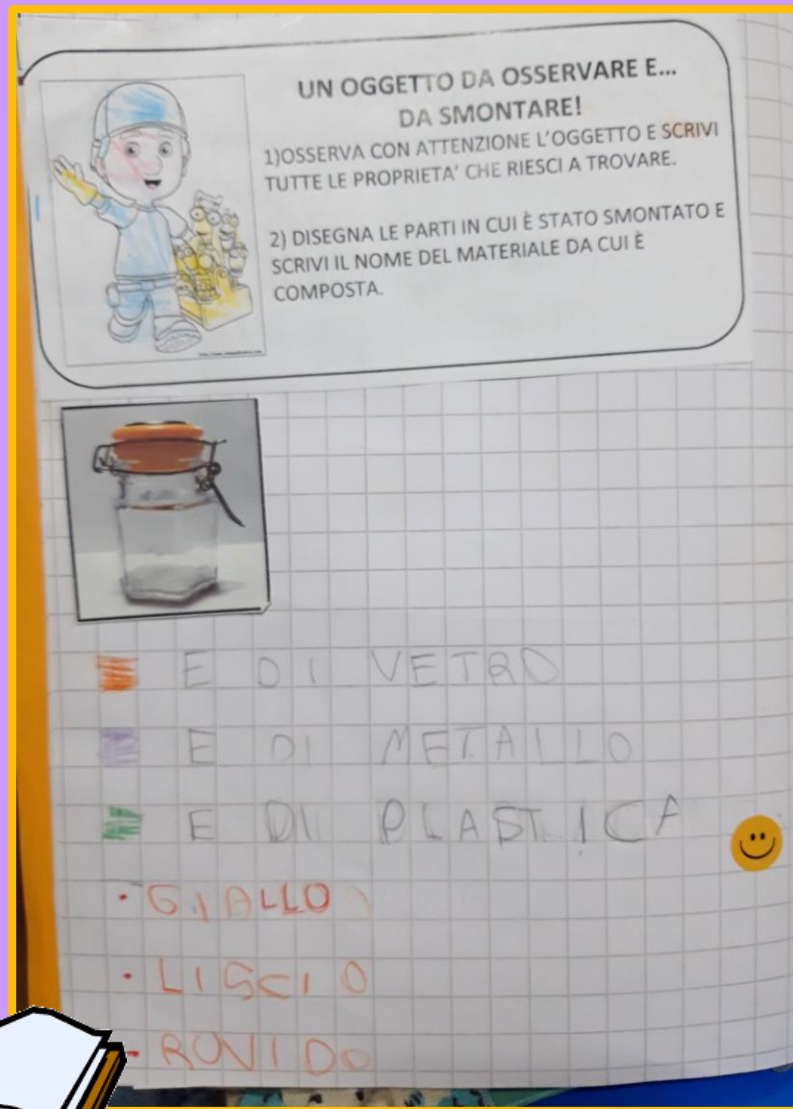 UN OGGETTO DA OSSERVARE E...
DA SMONTARE!
1)OSSERVA CON ATTENZIONE L'OGGETTO E SCRIVI
TUTTE LE PROPRIETA' CHE RIESCI A TROVARE.
2) DISEGNA LE PARTI IN CUI È STATO SMONTATO E
SCRIVI IL NOME DEL MATERIALE DA CUI È
COMPOSTA.
E DI VETRO
E DI METALLO
E DI PLASTICA
• GIALLO
• LISCIO
• ROVIDO